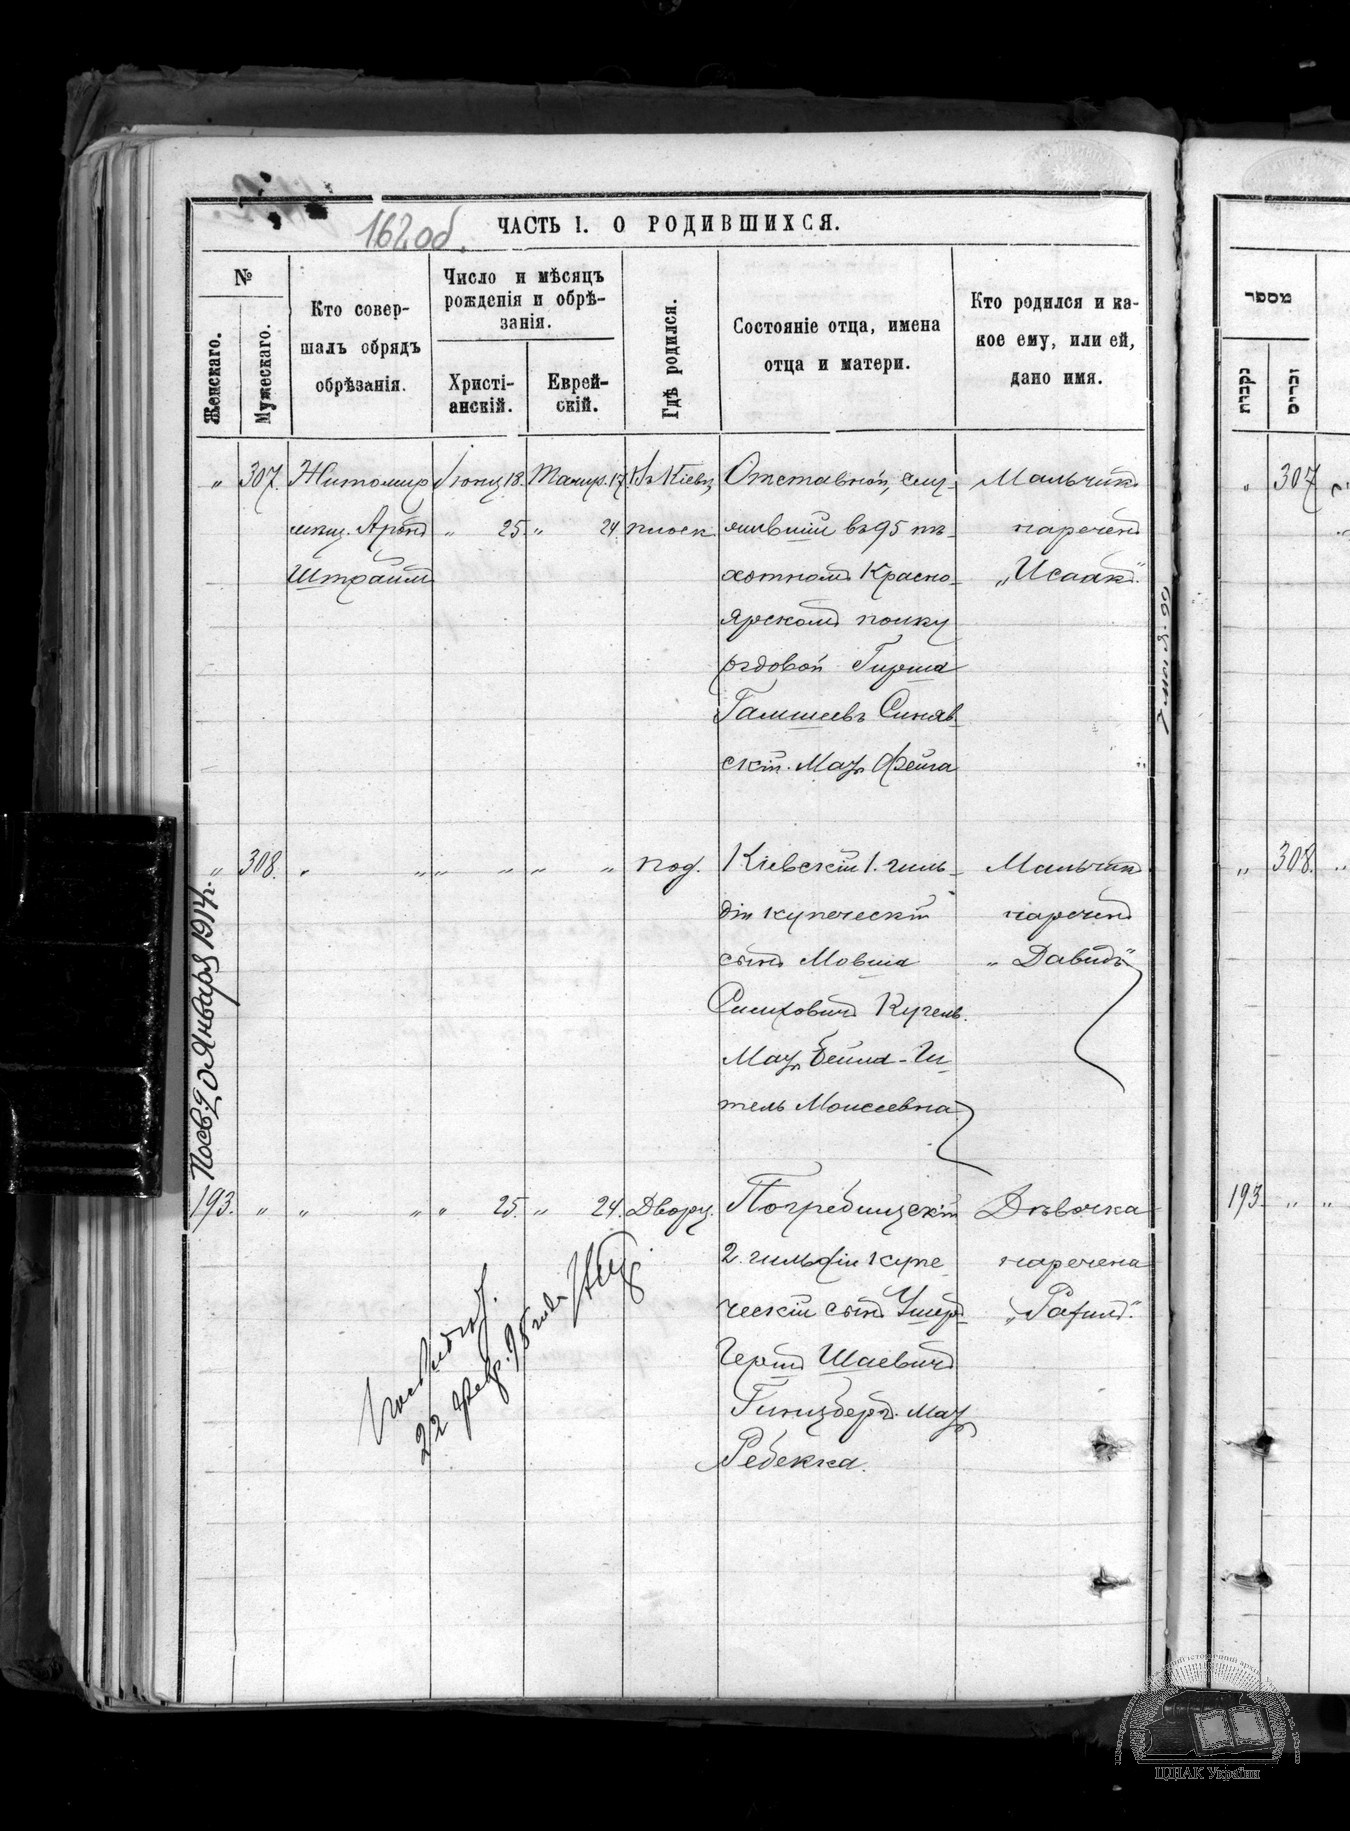 162 об.
ЧАСТЬ I. О РОДИВШИХСЯ.
№
Женскаго.
Мужескаго.
Кто совер-
шалъ обрядъ
обрѣзанія.
Число и мѣсяцъ
рожденія и обрѣ-
занія.
Христі-
анскій.
Еврей-
скій.
Гдѣ родился.
Состояніе отца, имена
отца и матери.
Кто родился и ка-
кое ему, или ей,
дано имя.
מספר
נקבות
זכרים
„ 307. Житомир
Аронъ
Штраймъ
Іюня 18.
„ 25.
Тамуз. 17.
„ 24.
Въ Кіевѣ,
плоск.
Отставной, слу-
жившій въ 95 пѣ-
хотномъ Красно-
ярскомъ полку
рядовой Гирша
Синяв-
скій. Мать Фейга
Мальчикъ
нареченъ
„Исаакъ".
„ 308. „ „ „ „ „ „ под.
Кіевскій 1. гиль-
діи купеческій
сынъ Мовша
Симховичъ Кугель.
Мать Бейла-Ги-
тель Моисеевна
Мальчикъ
нареченъ
„Давидъ"
20 Января 1914 г.
193. „ „ „ „ 25. „ 24. Дворц.
Погребищскій
2. гильдіи купе-
ческій сынъ Ушеръ-
Гершъ Шаевичъ
Гинцбергъ. Мать
Ребекка.
Дѣвочка
наречена
„Рахиль".
22 февр. 95 года
307
308.
193. „ „
ЦДІАК України